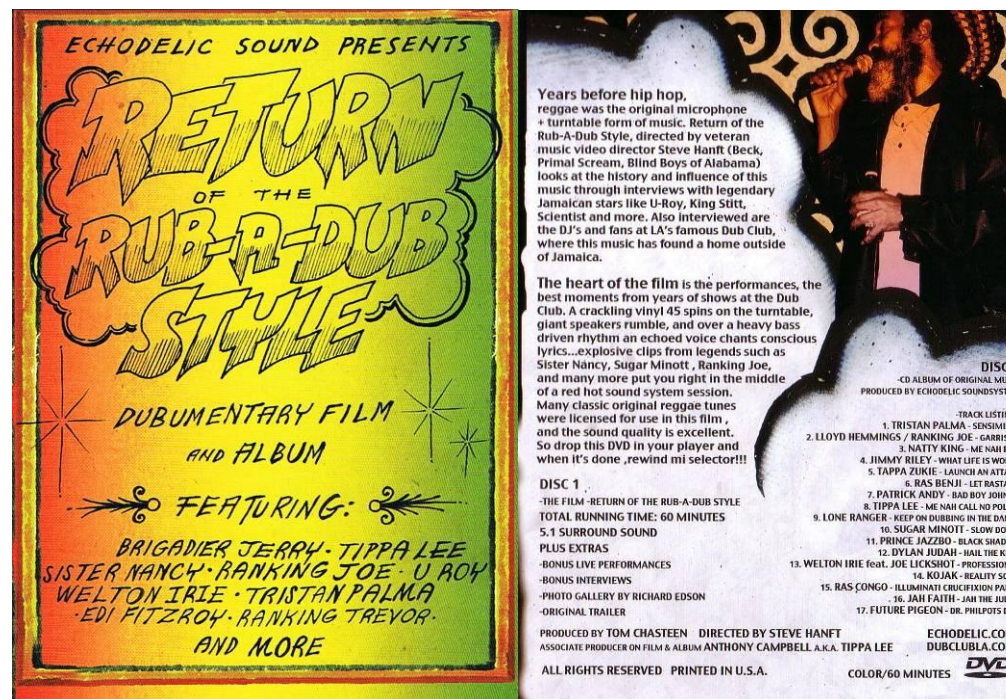 ECHODELIC SOUND PRESENTS
RETURN
OF THE
RUB-A-DUB
STYLE
DUBUMENTARY FILM
AND ALBUM
FEATURING:
BRIGADIER JERRY · TIPPA LEE
SISTER NANCY · RANKING JOE · U ROY
WELTON IRIE · TRISTAN PALMA
· EDI FITZROY · RANKING TREVOR ·
AND MORE
Years before hip hop,
reggae was the original microphone
+ turntable form of music. Return of the
Rub-A-Dub Style, directed by veteran
music video director Steve Hanft (Beck,
Primal Scream, Blind Boys of Alabama)
looks at the history and influence of this
music through interviews with legendary
Jamaican stars like U-Roy, King Stitt,
Scientist and more. Also interviewed are
the DJ's and fans at LA's famous Dub Club,
where this music has found a home outside
of Jamaica.
The heart of the film is the performances, the
best moments from years of shows at the Dub
Club. A crackling vinyl 45 spins on the turntable,
giant speakers rumble, and over a heavy bass
driven rhythm an echoed voice chants conscious
lyrics...explosive clips from legends such as
Sister Nancy, Sugar Minott , Ranking Joe,
and many more put you right in the middle
of a red hot sound system session.
Many classic original reggae tunes
were licensed for use in this film ,
and the sound quality is excellent.
So drop this DVD in your player and
when it's done ,rewind mi selector!!!
DISC 1
-THE FILM -RETURN OF THE RUB-A-DUB STYLE
TOTAL RUNNING TIME: 60 MINUTES
5.1 SURROUND SOUND
PLUS EXTRAS
-BONUS LIVE PERFORMANCES
-BONUS INTERVIEWS
-PHOTO GALLERY BY RICHARD EDSON
-ORIGINAL TRAILER
DISC
-CD ALBUM OF ORIGINAL
PRODUCED BY ECHODELIC
-TRACK
1. TRISTAN PALMA -
2. LLOYD HEMMINGS / RANKING JOE -
3. NATTY KING - ME NAH
4. JIMMY RILEY - WHAT LIFE IS
5. TAPPA ZUKIE - LAUNCH AN
6. RAS BENJI - LET
7. PATRICK ANDY - BAD BOY
8. TIPPA LEE - ME NAH CALL NO
9. LONE RANGER - KEEP ON DUBBING IN THE
10. SUGAR MINOTT - SLOW
11. PRINCE JAZZBO - BLACK
12. DYLAN JUDAH - HAIL THE
13. WELTON IRIE feat. JOE LICKSHOT -
14. KOJAK - REALITY
15. RAS CONGO - ILLUMINATI CRUCIFIXION
16. JAH FAITH - JAH THE
17. FUTURE PIGEON - DR. PHILPOTS
PRODUCED BY TOM CHASTEEN DIRECTED BY STEVE HANFT
ASSOCIATE PRODUCER ON FILM & ALBUM ANTHONY CAMPBELL A.K.A. TIPPA LEE
ECHODELIC.CO
DUBCLUBLA.CO
ALL RIGHTS RESERVED PRINTED IN U.S.A.
COLOR/60 MINUTES
DVD